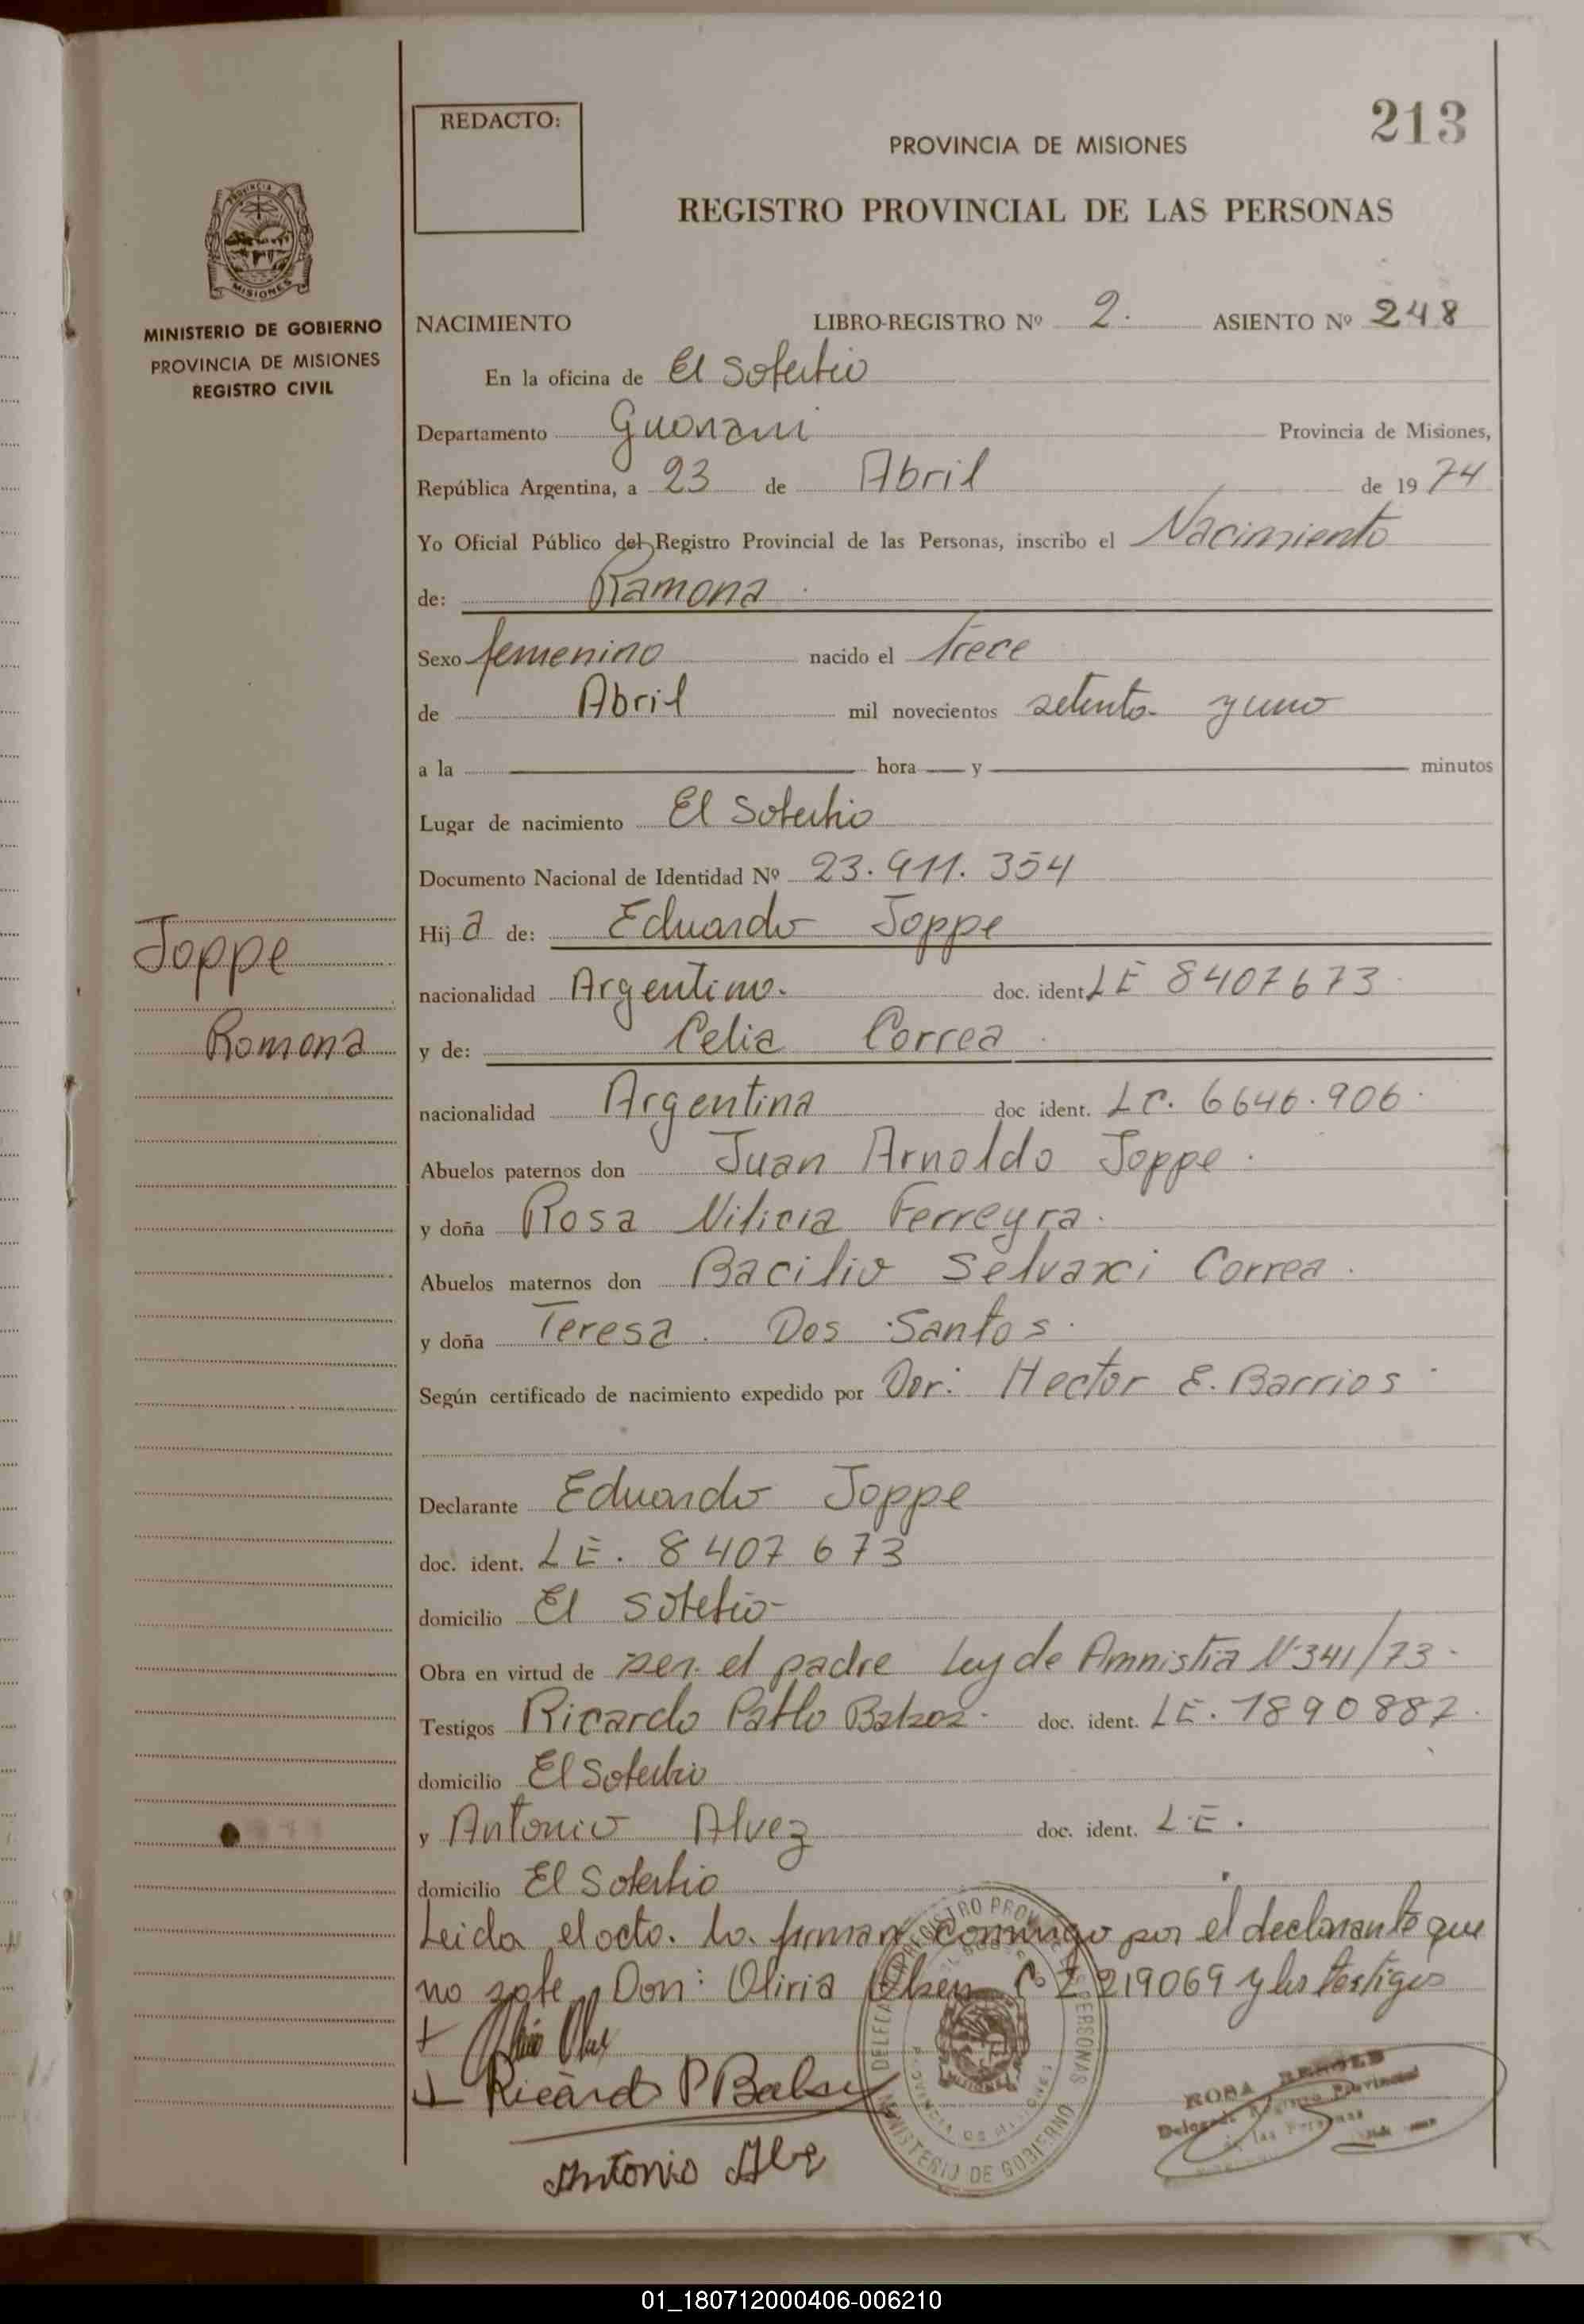 213
REDACTO:
PROVINCIA DE MISIONES
REGISTRO PROVINCIAL DE LAS PERSONAS
MISIONES
MINISTERIO DE GOBIERNO
PROVINCIA DE MISIONES
REGISTRO CIVIL
NACIMIENTO LIBRO-REGISTRO Nº 2. ASIENTO Nº 248
En la oficina de El Soberbio
Departamento Guarani Provincia de Misiones,
República Argentina, a 23 de Abril de 1974
Yo Oficial Público del Registro Provincial de las Personas, inscribo el Nacimiento
de: Ramona
Sexo femenino nacido el trece
de Abril mil novecientos setenta y uno
a la hora y minutos
Lugar de nacimiento El Soberbio
Documento Nacional de Identidad Nº 23.911.354
Hija de: Eduardo Joppe
Joppe
nacionalidad Argentino. doc. ident. LE 8407673
Ramona
y de: Celia Correa
nacionalidad Argentina doc ident. LC. 6646.906
Abuelos paternos don Juan Arnoldo Joppe.
y doña Rosa Ferreyra.
Abuelos maternos don Bacilio Correa.
y doña Teresa. Dos Santos.
Según certificado de nacimiento expedido por Dor: Hector E. Barrios
Declarante Eduardo Joppe
doc. ident. LE. 8407673
domicilio El Soberbio
Obra en virtud de ser el padre Ley de Amnistia N·341/73-
Testigos Ricardo Pablo doc. ident. LE. 7890887.
domicilio El Soberbio
y Antonio Alvez doc. ident. LE.
domicilio El Soberbio
Leida el acta. la firman conmigo por el declarante que
no sabe, Don: Oliria Olsen C I 219069 y los testigos
Ricardo P
Antonio
DELEGACION REGISTRO PROVINCIAL DE LAS PERSONAS
MINISTERIO DE GOBIERNO
PROVINCIA DE MISIONES
ROSA
Registro Provincial
de las Personas
01_180712000406-006210